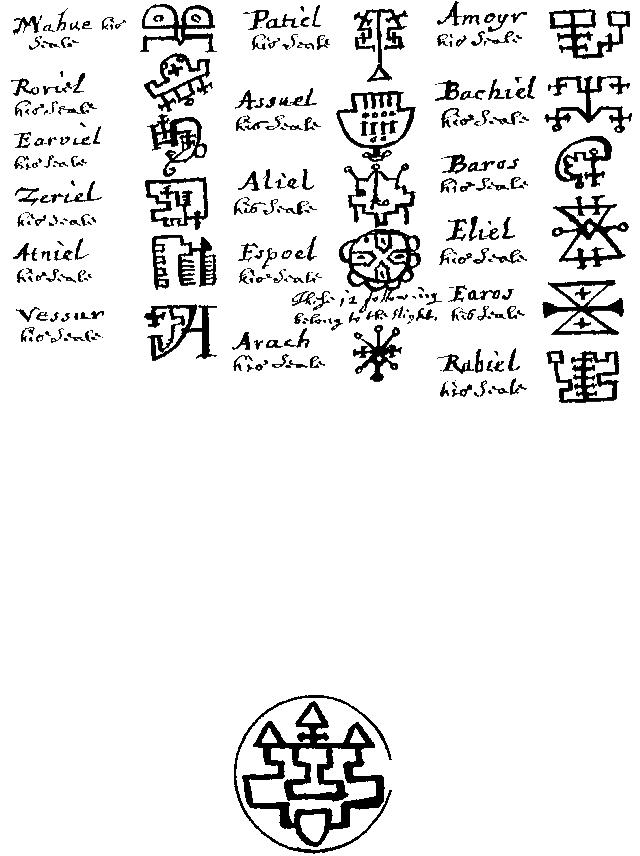 Mahue his
Seale
Roriel
his Seale
Earviel
his Seale
Zeriel
his Seale
Atniel
his Seale
Vessur
his Seale
Patiel
his Seale
Assuel
his Seale
Aliel
his Seale
Espoel
his Seale
These 12 following
belong to the Night.
Arach
his Seale
Amoyr
his Seale
Bachiel
his Seale
Baros
his Seale
Eliel
his Seale
Earos
his Seale
Rabiel
his Seale